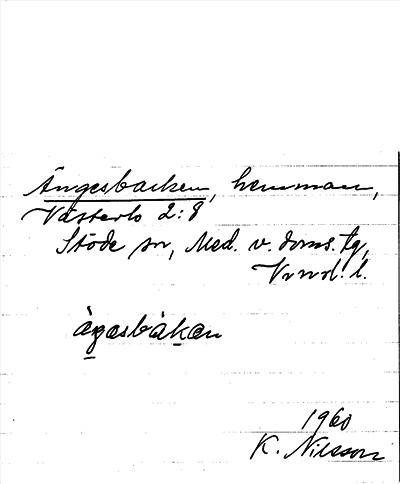 Ängesbacken, hemman,
Västerlo 2:8
Stöde sn, Med. v. doms. tg,
Vrnrl. l.
àgasbàkan
1960
K. Nilsson